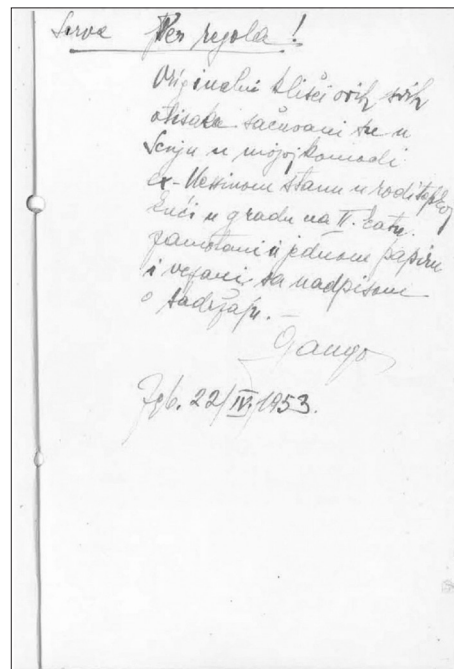 Serva Per regola!
Originalni klišei ovih svih
otisaka sačuvani su u
Senju u mojoj komodi
ex-Nessinom stanu u roditeljskoj
kući u gradu na II. katu.
zamotani u jednom papiru
i vezani, sa nadpisom
o sadržaju. -
Zgb. 22/IV. 1953.